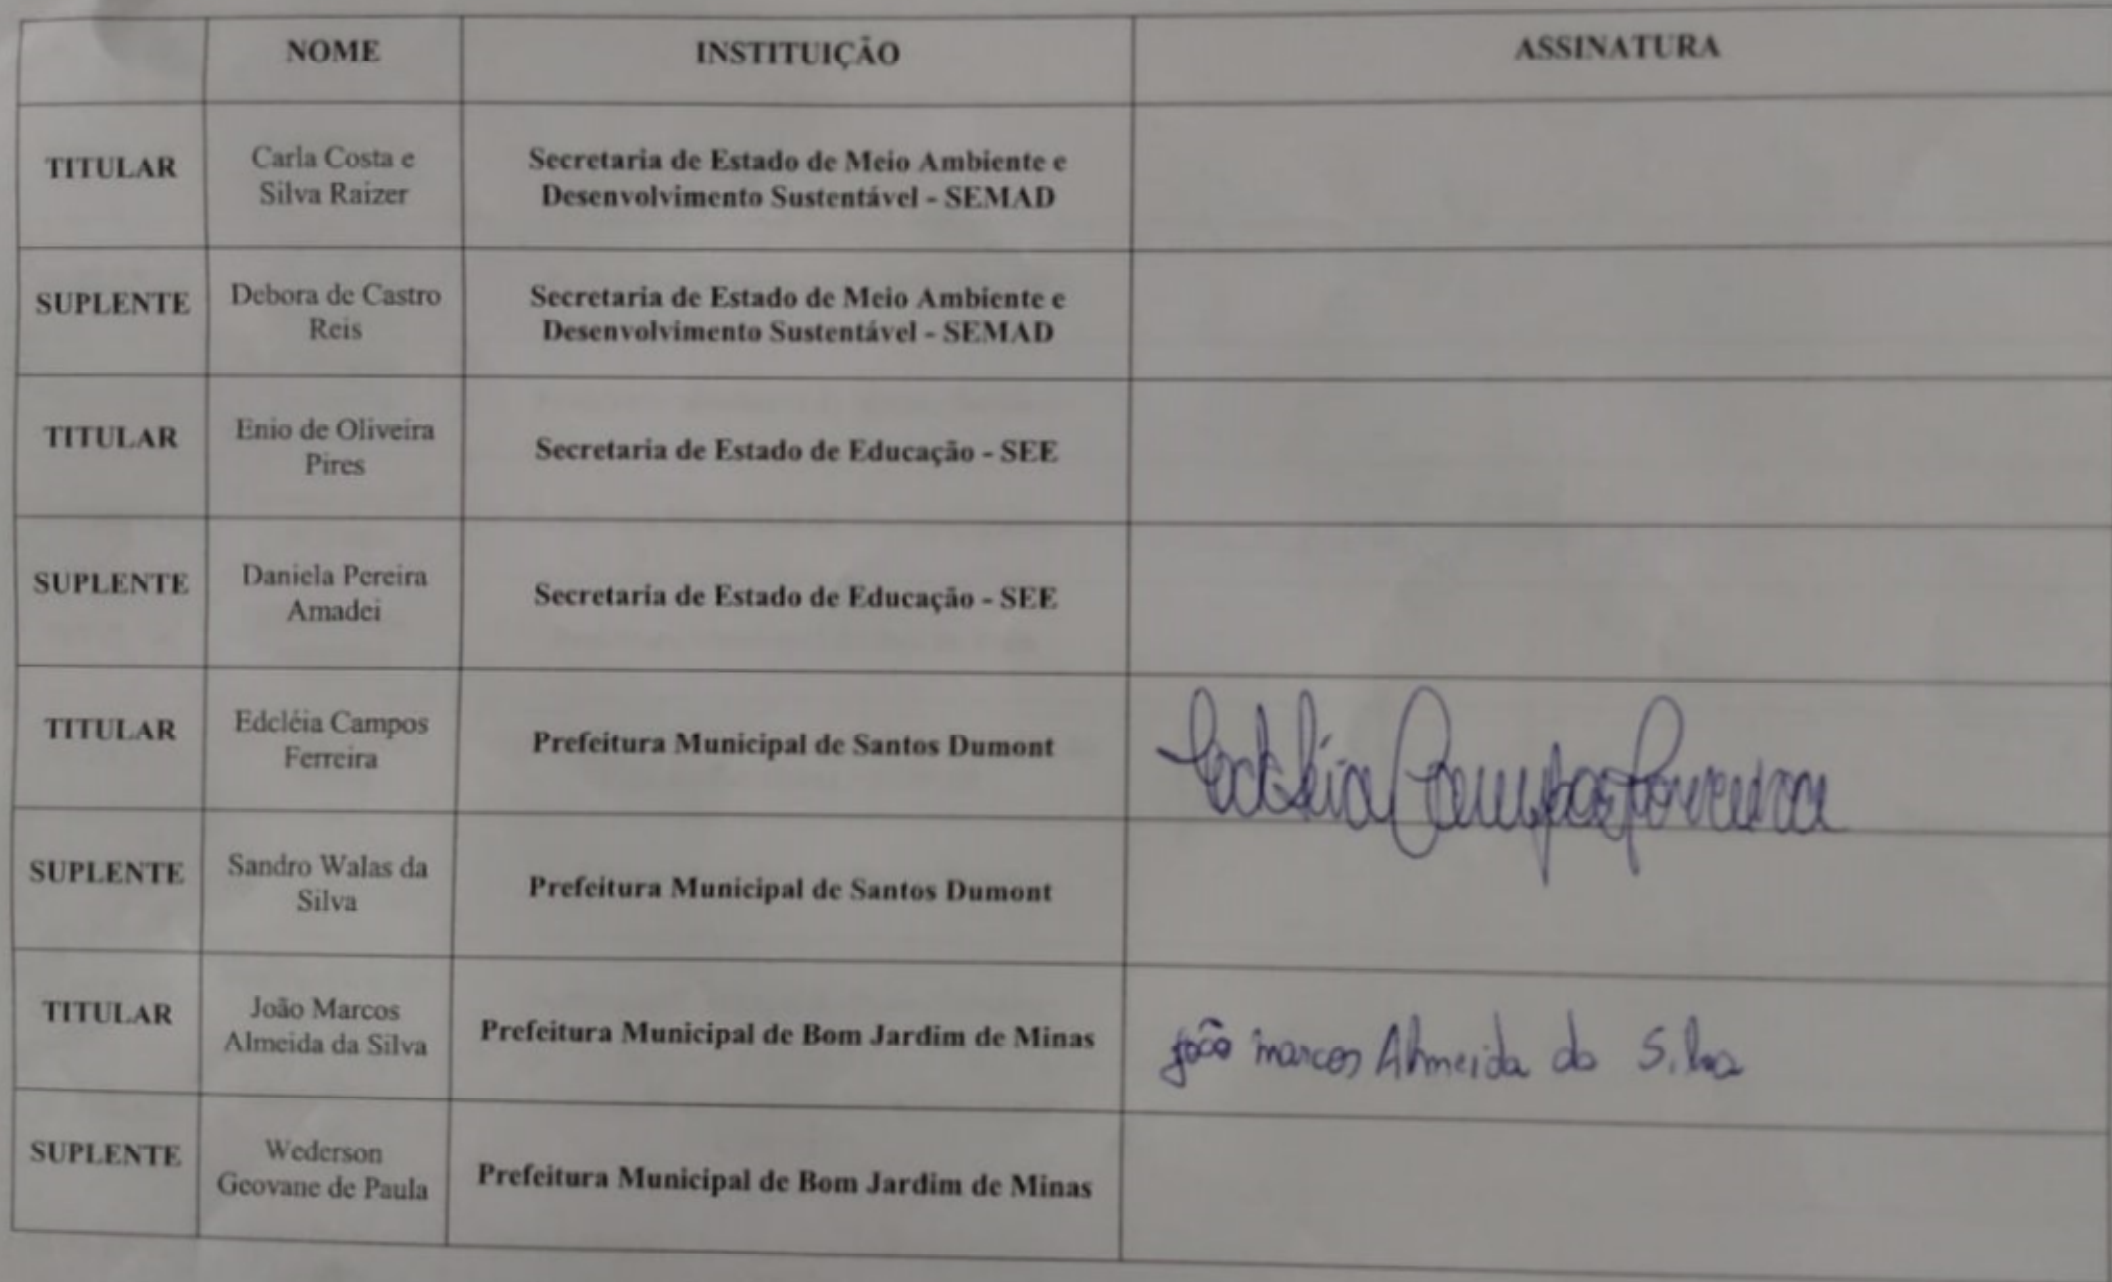 NOME INSTITUIÇÃO ASSINATURA
TITULAR Carla Costa e Silva Raizer Secretaria de Estado de Meio Ambiente e Desenvolvimento Sustentável - SEMAD
SUPLENTE Debora de Castro Reis Secretaria de Estado de Meio Ambiente e Desenvolvimento Sustentável - SEMAD
TITULAR Enio de Oliveira Pires Secretaria de Estado de Educação - SEE
SUPLENTE Daniela Pereira Amadei Secretaria de Estado de Educação - SEE
TITULAR Edcléia Campos Ferreira Prefeitura Municipal de Santos Dumont Edcléia Campos Ferreira
SUPLENTE Sandro Walas da Silva Prefeitura Municipal de Santos Dumont
TITULAR João Marcos Almeida da Silva Prefeitura Municipal de Bom Jardim de Minas João marcos Almeida da Silva
SUPLENTE Wederson Geovane de Paula Prefeitura Municipal de Bom Jardim de Minas